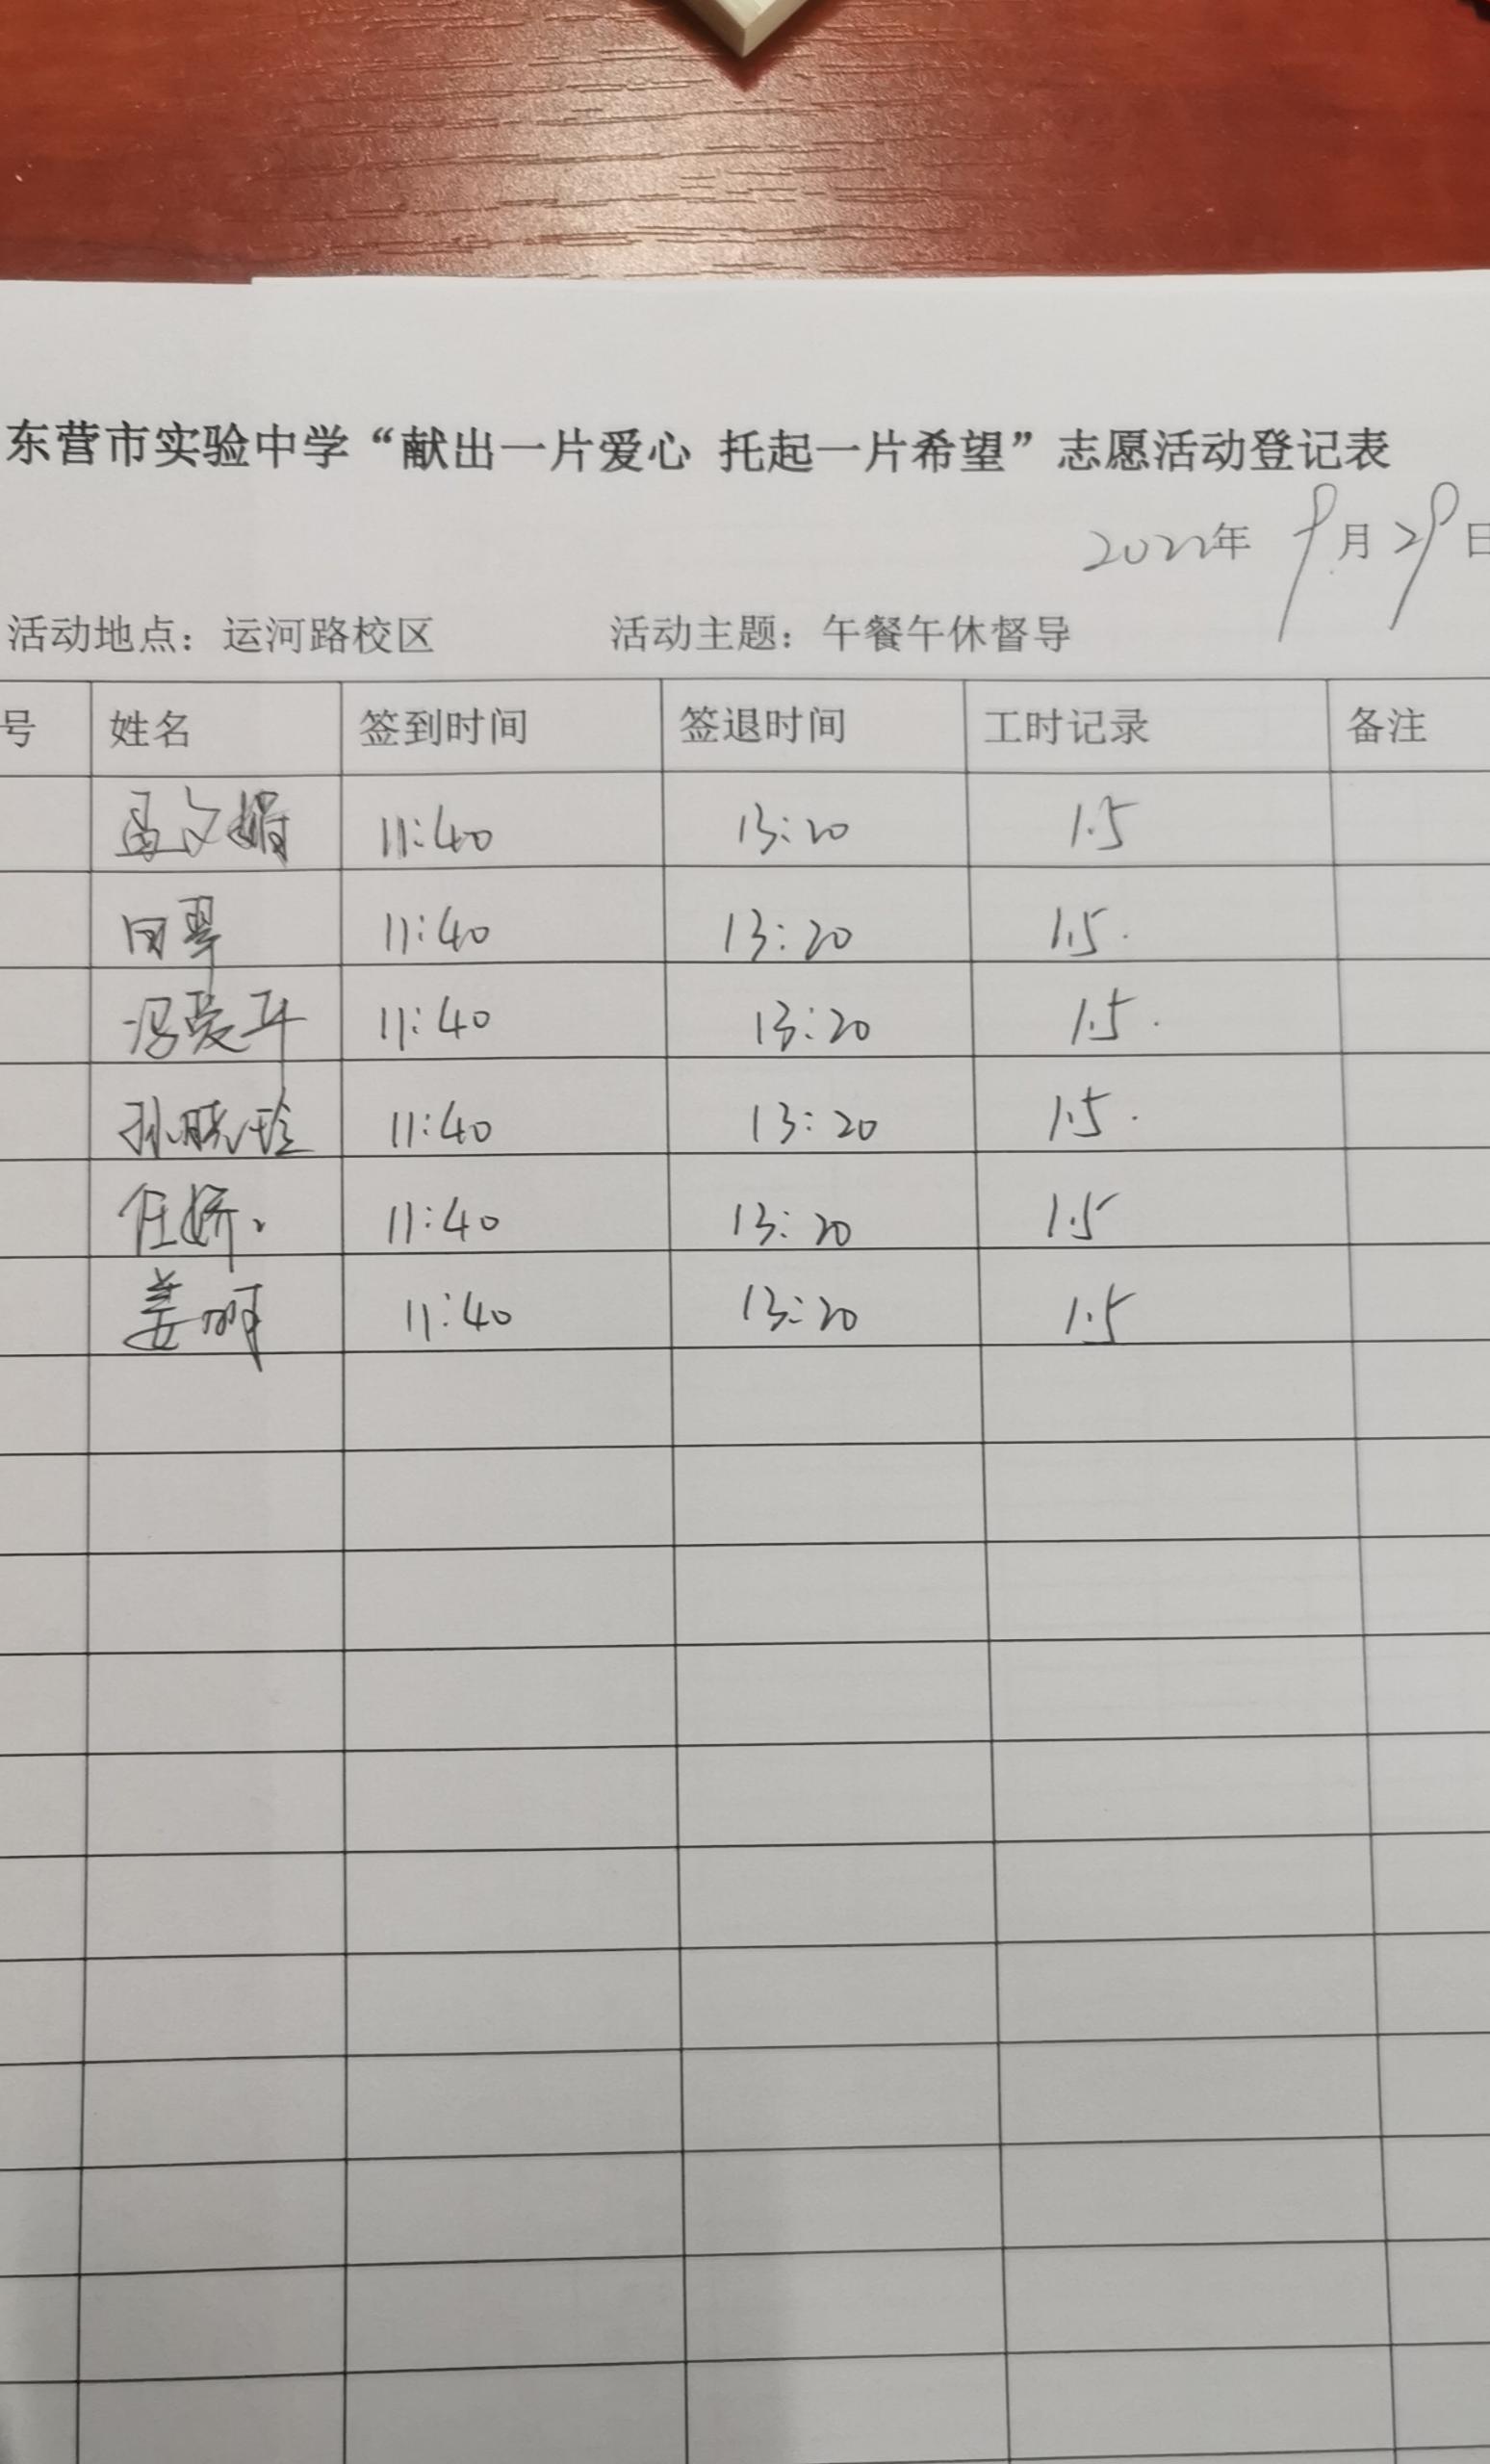 东营市实验中学“献出一片爱心 托起一片希望”志愿活动登记表
2022年 9月29日
活动地点：运河路校区 活动主题：午餐午休督导
号 姓名 签到时间 签退时间 工时记录 备注
孟文娟 11:40 13:20 1.5
田翠 11:40 13:20 1.5.
冯爱 11:40 13:20 1.5.
孙晓玲 11:40 13:20 1.5.
任娇 11:40 13:20 1.5
姜明 11:40 13:20 1.5